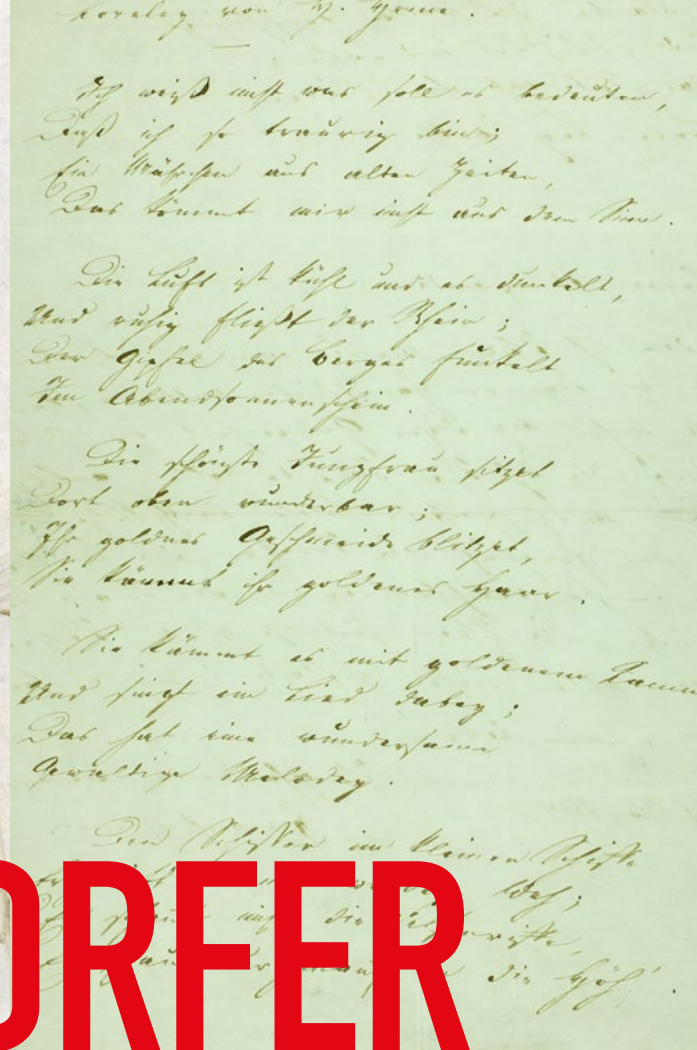 Loreley von H. Heine.
Ich weiß nicht was soll es bedeuten,
Daß ich so traurig bin;
Ein Mährchen aus alten Zeiten,
Das kömmt mir nicht aus dem Sinn.
Die Luft ist kühl und es dunkelt,
Und ruhig fließt der Rhein;
Der Gipfel des Berges funkelt
Im Abendsonnenschein.
Die schönste Jungfrau sitzet
Dort oben wunderbar;
Ihr goldnes Geschmeide blitzet,
Sie kämmt ihr goldenes Haar.
Sie kämmt es mit goldenem Kamme
Und singt ein Lied dabey;
Das hat eine wundersame
Gewaltige Melodey.
Den Schiffer im kleinen Schiffe
Weh;
nicht die
die Höh'.
ORFER